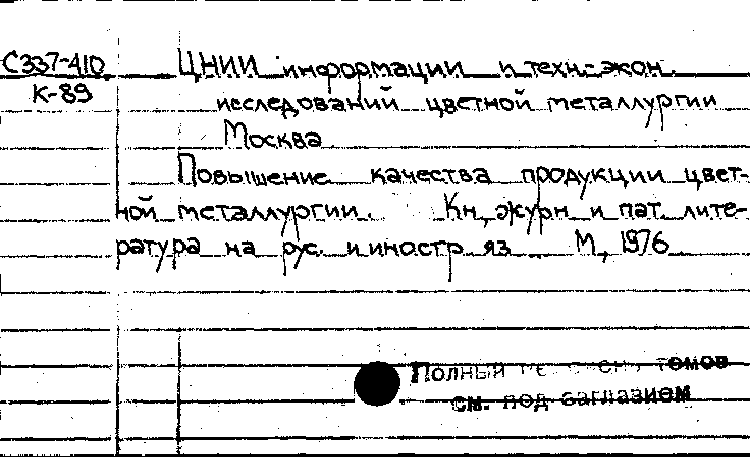 С337-410 ЦНИИ информации и техн.-экон.
К-89 исследований цветной металлургии
Москва
Повышение качества продукции цвет-
ной металлургии. Кн., журн. и пат. лите-
ратура на рус. и иностр. яз. М., 1976
Полный томов
см. под заглавием